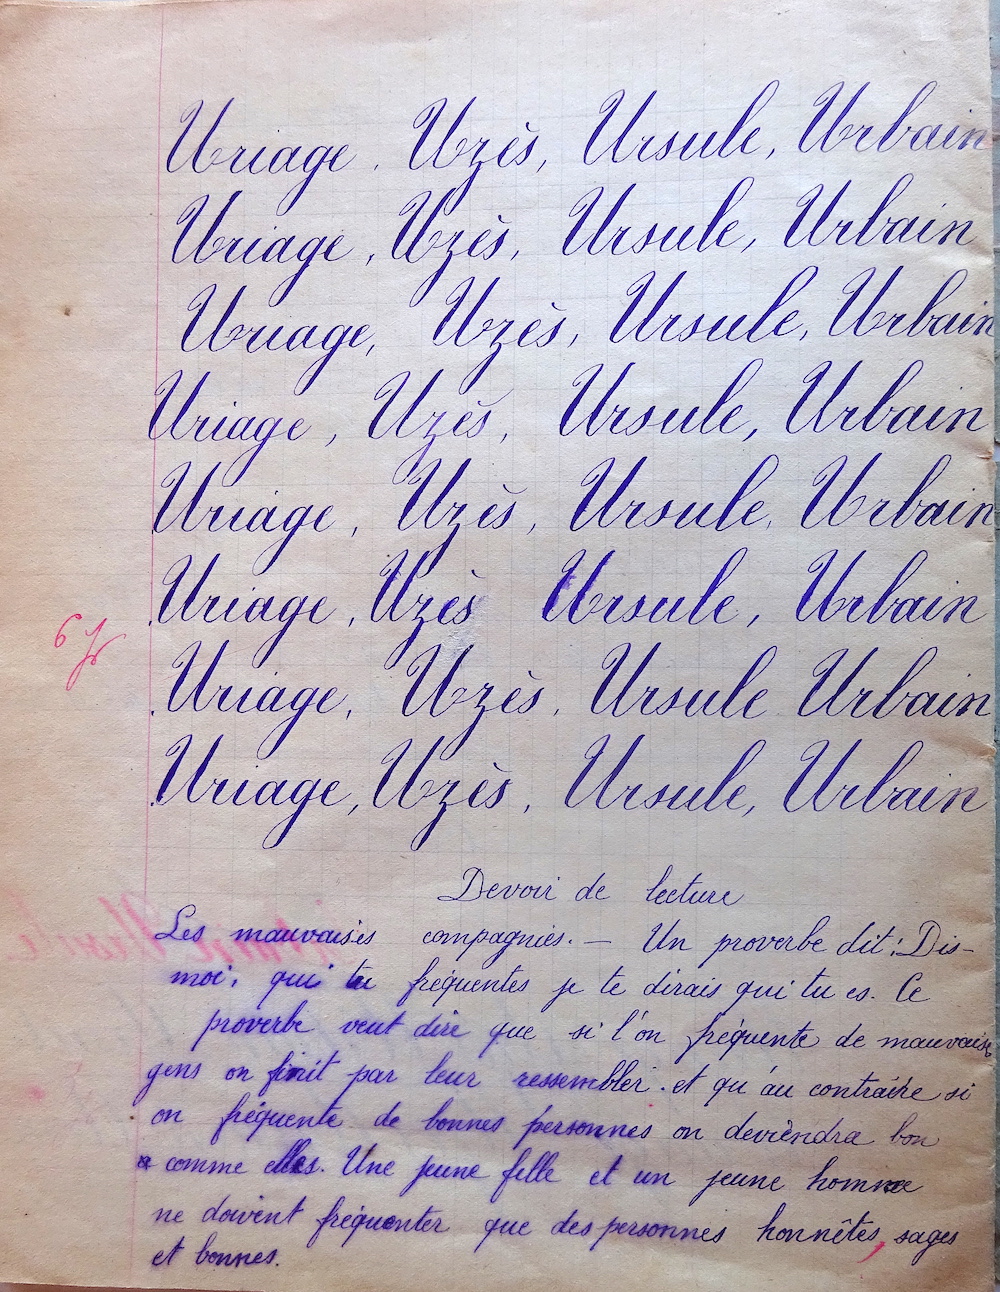 Uriage, Uzès, Ursule, Urbain
Uriage, Uzès, Ursule, Urbain
Uriage, Uzès, Ursule, Urbain
Uriage, Uzès, Ursule, Urbain
Uriage, Uzès, Ursule, Urbain
Uriage, Uzès Ursule, Urbain
Uriage, Uzès, Ursule Urbain
Uriage, Uzès, Ursule, Urbain
Devoir de lecture
Les mauvaises compagnies. — Un proverbe dit: Dis-
moi, qui tu fréquentes je te dirais qui tu es. Ce
proverbe veut dire que si l'on fréquente de mauvais
gens on finit par leur ressembler. et qu'au contraire si
on fréquente de bonnes personnes on deviendra bon
comme elles. Une jeune fille et un jeune homme
ne doivent fréquenter que des personnes honnêtes, sages
et bonnes.